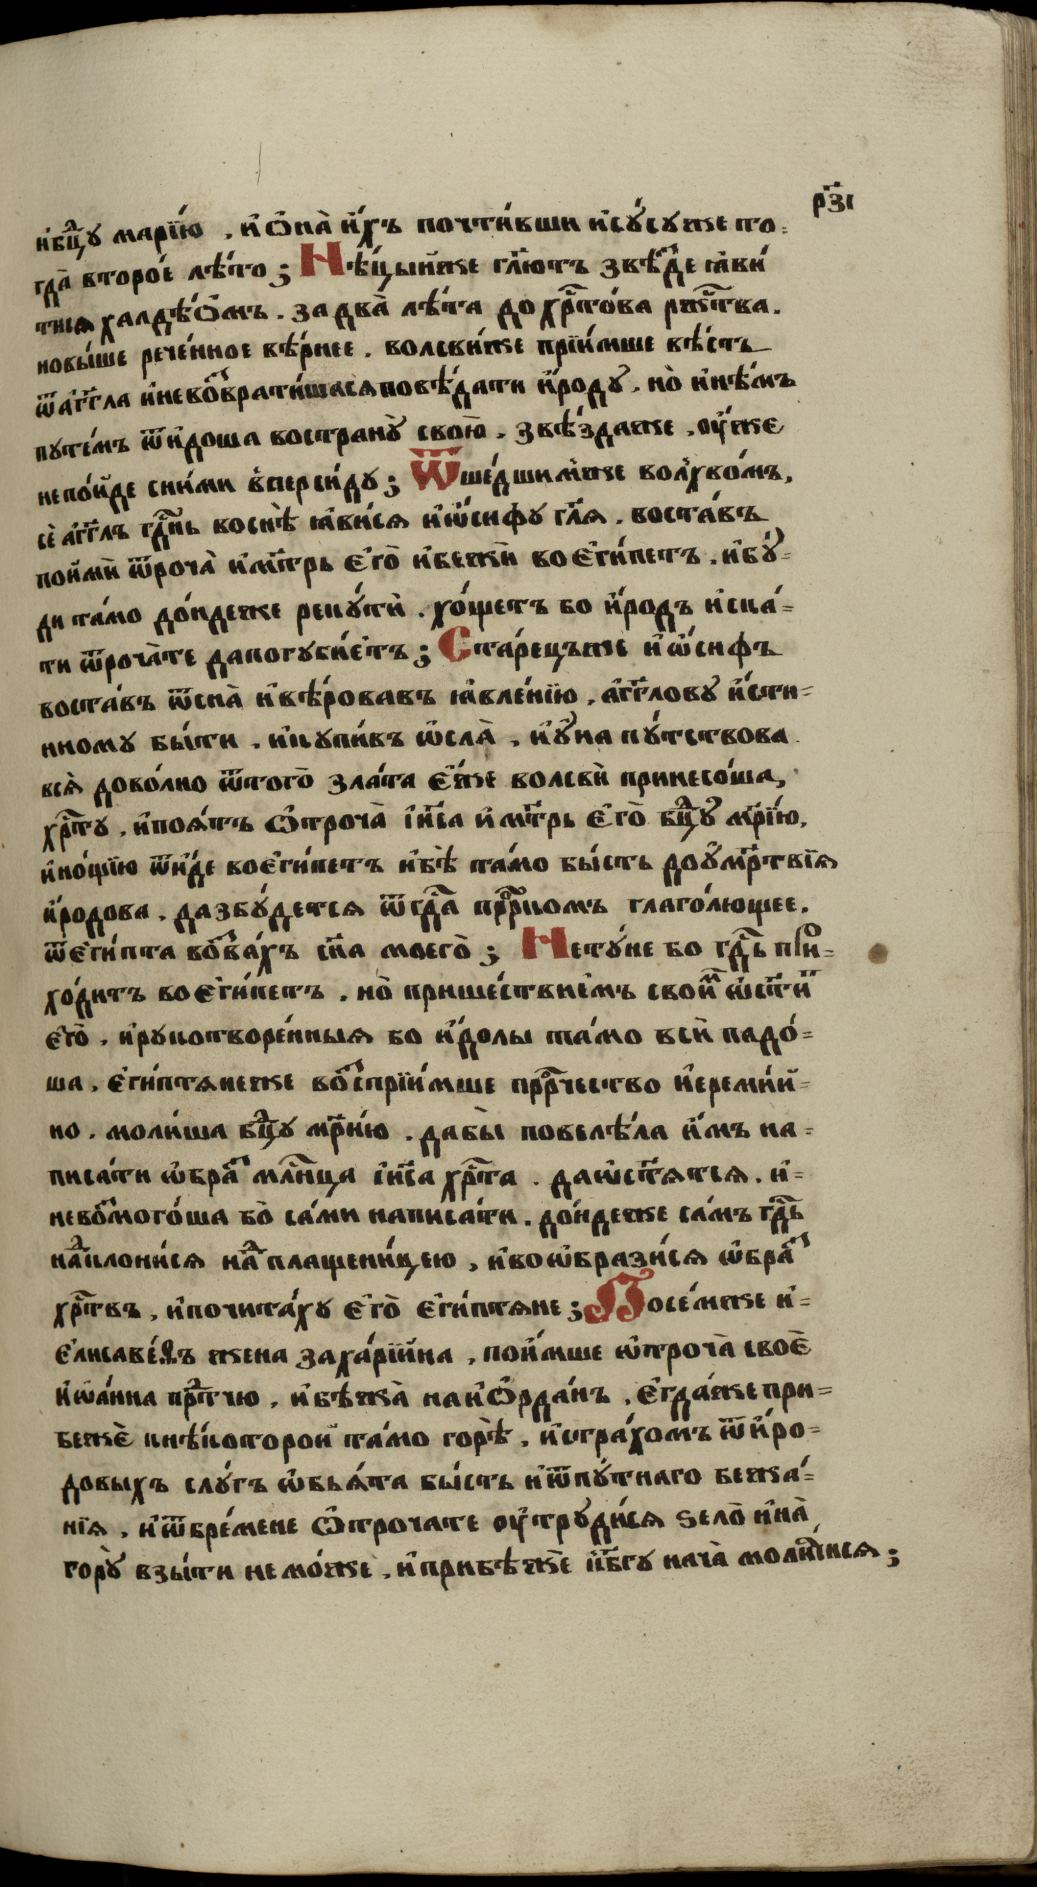 рз҃і
и҆бцⷣу марі́ю , и҆ѻ҆на̀ и҆́хъ почти́вши и҆су́сужє то-
гда̀ второ́е лѣ́то ; Нѣ́цыи́же гл҃ютъ ѕвѣⷥ҇де ꙗ҆ви́
тися халдѣ́ѻмъ . за два̀ лѣ́та до хрⷭ҇то́ва ржⷭ҇тва .
но вы́ше рече́нное вѣ́рнее . волсви́же прїи́мше вѣ́сть
ѿ а҆́гг҃ла и҆невоⷥ҇врати́шася повѣ́дати и҆́роду̀ . но̀ и҆нѣ́мъ
путе́мъ ѿи́доша во страну̀ свою̀ . звѣ́здаже , оу҆́же
непо́йде сни́ми в̾перси́ду ; Ѿше́дшим̾же волхво́мъ ,
сѐ а҆́гг҃лъ гдⷭ҇нь во снѣ̀ ꙗ҆ви́ся и҆ѡ҆́сифу гл҃я . воста́въ
поймѝ ѻ҆троча̀ и҆мт҃рь є҆го̀ и҆бежѝ во є҆ги́петъ . и҆бу́-
ди та́мо до́ндеже реку́ти̇ . хо́щетъ бо и҆́родъ и҆ска́-
ти ѻ҆троча̀те да погуби́етъ ; Ста́рецъже и҆ѡ҆́сифъ
воста́въ ѿсна̀ и҆вѣ́ровавъ ꙗ҆вле́нїю , а҆́гг҃лову и҆́сти-
нному бы́ти . и҆купи́въ ѡ҆сля̀ , и҆у҆́на пу́тствова
вся̀ дово́лно ѿтого̀ зла́та є҆́же волсвѝ принесо́ша,
хрⷭ҇ту , и҆поя́тъ ѻ҆троча̀ і҆и҃са и҆ мт҃рь є҆го̀ бцⷣу мр҃і́ю,
и҆но́щїю ѿи́де во є҆ги́петъ и҆бѣ̀ та́мо бы́сть до у҆мр҃твїя
и҆́родова . да збу́дется ѿ гдⷭ҇а прⷪ҇р҃комъ глаго́лющее .
ѿ є҆ги́пта воⷥ҇ва́хъ сн҃а моего̀ ; Нету́не бо гдⷭ҇ь прїи-
хо́дитъ во є҆ги́петъ . но̀ прише́ствием̾ъ свои̇ⷨ ѡ҆ст҃и́
є҆го̀ . и҆рукотворе́нныя бо и҆́долы та́мо всѝ падо́-
ша . є҆ги́птянеже воⷭ҇прїи́мше прⷪ҇р҃чество и҆еремі́й-
но . моли́ша бцⷣу мр҃и́ю . дабы̀ повелѣ́ла и҆́мъ на-
писа́ти ѡ҆браⷥ҇ млⷣнца і҆и҃са хрⷭ҇та . да ѡ҆ст҃я́тся . и҆-
невоⷥ҇мого́ша бо̀ са́ми написа́ти . до́ндеже са́мъ гдⷭ҇ь
наⷦ҇лони́ся наⷣ плащени́цею , и҆во ѡ҆брази́ся ѡ҆браⷥ҇
хрⷭ҇твъ , и҆почита́ху є҆го̀ є҆ги́птяне ; По се́мже и҆-
є҆лисаве́ѳъ жена заха́рїйна , пои́мше ѡ҆троча̀ своѐ
и҆ѡ҆а́нна прⷣтчю , и҆бѣжа̀ на и҆ѻ҆рда́нъ . є҆гда́же при-
бежѐ кнѣ́которой та́мо горѣ̀ , и҆стра́хомъ ѿ и҆́ро-
довыхъ слу́гъ ѡ҆бья́та бы́сть и҆ѿпу́тнаго бежа́-
нїя , и҆ѿбре́мене ѻ҆трочате оу҆труди́ся ѕело̀ и҆на̀
гору̀ взы́ти немо́же , и҆прибѣжѐ кⷪ҇бг҃у нача̀ моли́тися ;